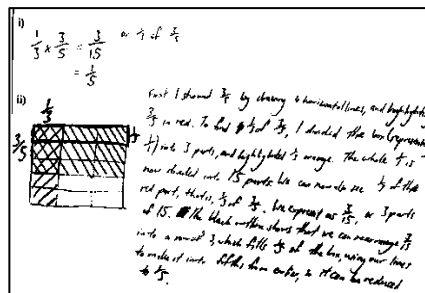 i) 1/3 × 3/5 = 3/15 or 1/3 of 3/5
= 1/5
ii) 1/3
3/5
First I showed 3/5 by drawing 4 horizontal lines, and highlighted
3/5 in red. To find 1/3 of 3/5, I divided the box (represents
1) into 3 parts, and highlighted 1/3 orange. The whole is
now divided into 15 parts. We can now also see 1/3 of the
red part, that is, 1/3 of 3/5, we express as 3/15, or 3 parts
of 15. The black outline shows that we can rearrange 3/15
into a row of 3, which fills 1/5 of the box, using our lines
to make it into fifths from earlier, so it can be reduced
to 1/5.